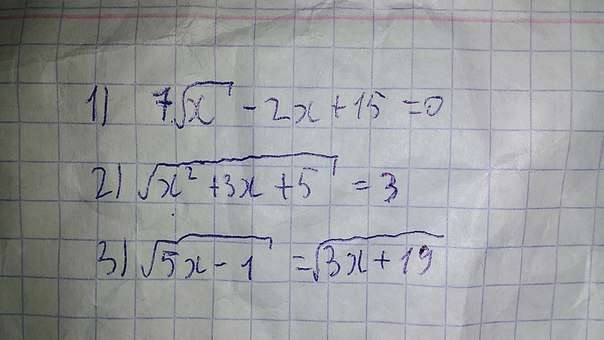 1) 7√x - 2x + 15 = 0
2) √(x² + 3x + 5) = 3
3) √(5x - 1) = √(3x + 19)